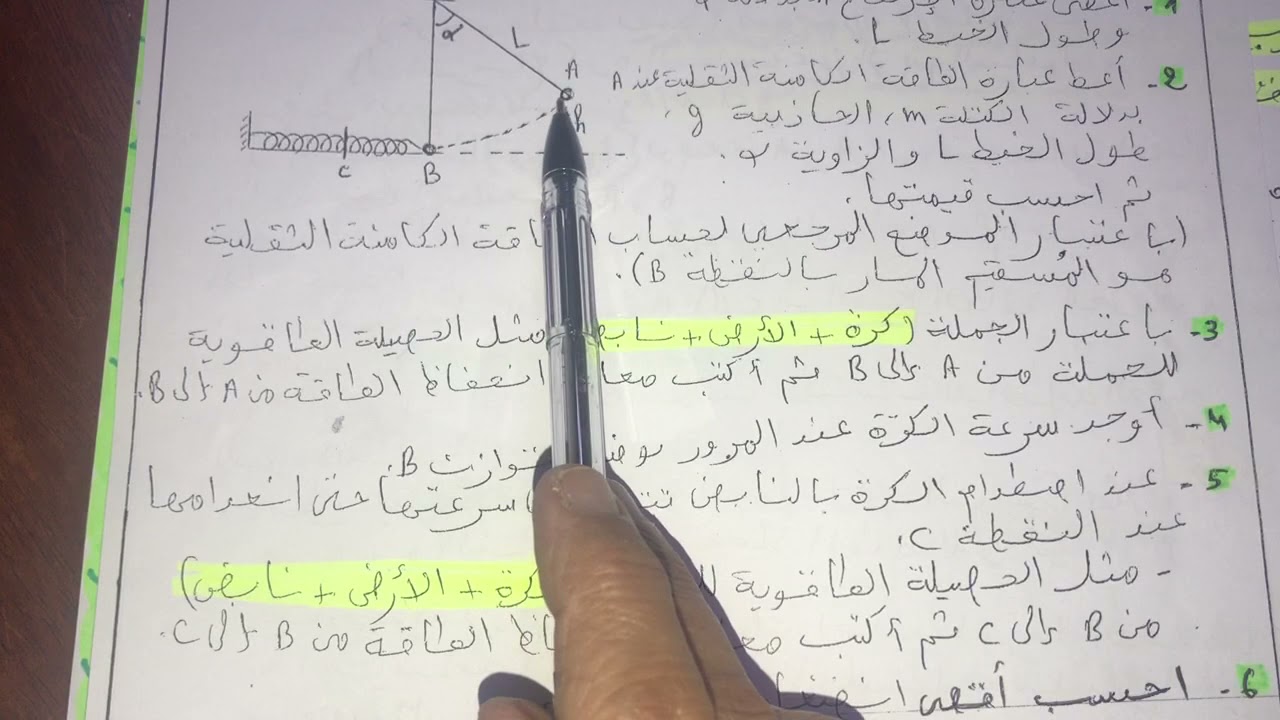 وطول الخيط L.
2- أعط عبارة الطاقة الكامنة الثقلية عند A
بدلالة الكتلة m، الجاذبية g،
طول الخيط L والزاوية α.
ثم احسب قيمتها.
(باعتبار الموضع المرجعي لحساب الكامنة الثقلية
هو المستقيم المار بالنقطة B).
3- باعتبار الجملة (كرة + الأرض + نابض مثل الحصيلة الطاقوية
للجملة من A إلى B ثم أكتب انحفاظ الطاقة من A إلى B.
4- أوجد سرعة الكرة عند المرور B.
5- عند اصطدام الكرة بالنابض سرعتها حتى انعدامها
عند النقطة C.
- مثل الحصيلة الطاقوية كرة + الأرض + نابض)
من B إلى C ثم أكتب الطاقة من B إلى C.
6- احسب أقصى
α
L
A
h
C
B